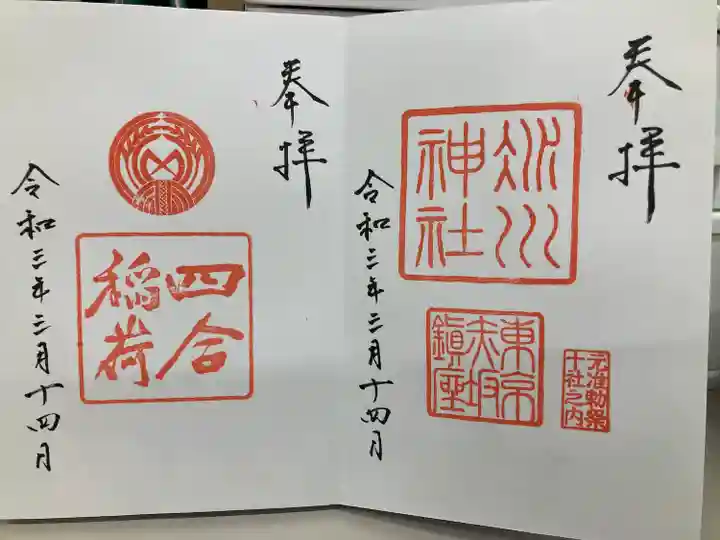 奉拝
氷川
神社
東京
赤坂
鎮座
元准勅祭
十社之内
令和三年三月十四日
奉拝
四合
稲荷
令和三年三月十四日